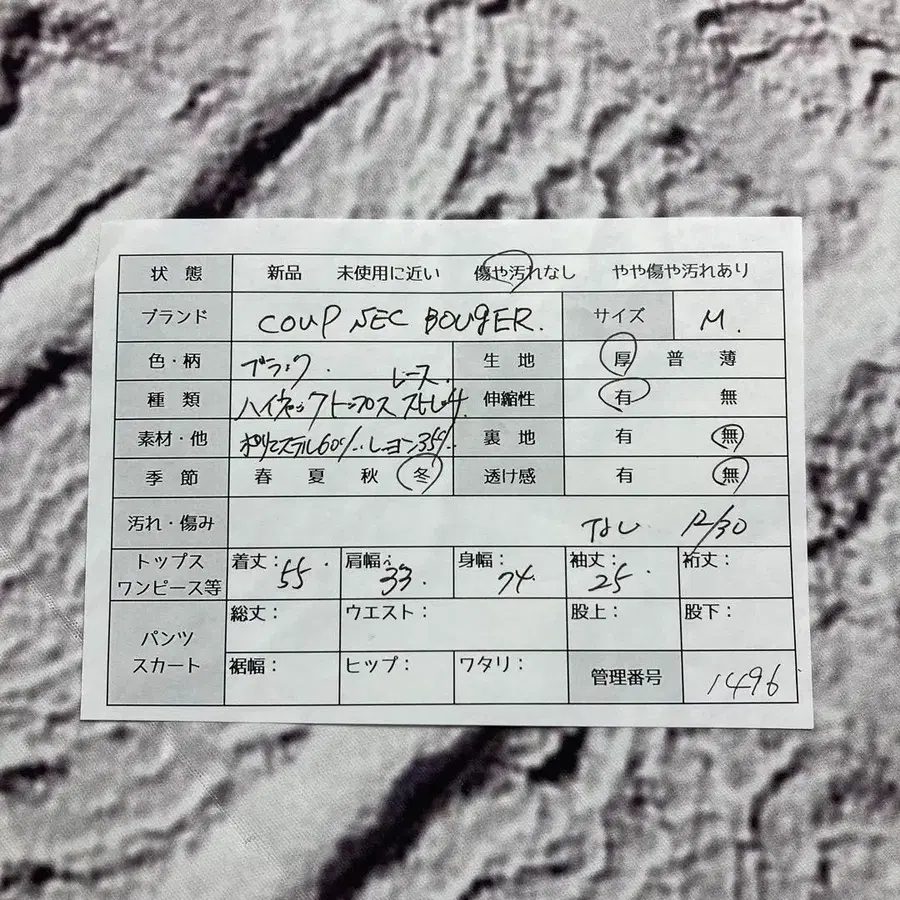 状態 新品 未使用に近い 傷や汚れなし やや傷や汚れあり
ブランド COUP NEC BOUGER. サイズ M.
色・柄 ブラック. 生地 厚 普 薄
レース.
種類 ハイネックトップス ストレッチ 伸縮性 有 無
素材・他 ポリエステル60%. レーヨン35%. 裏地 有 無
季節 春 夏 秋 冬 透け感 有 無
汚れ・傷み なし 12/30
トップス ワンピース等 着丈: 55. 肩幅: 33. 身幅: 74. 袖丈: 25. 裄丈:
パンツ スカート 総丈: ウエスト: 股上: 股下:
裾幅: ヒップ: ワタリ: 管理番号 1496